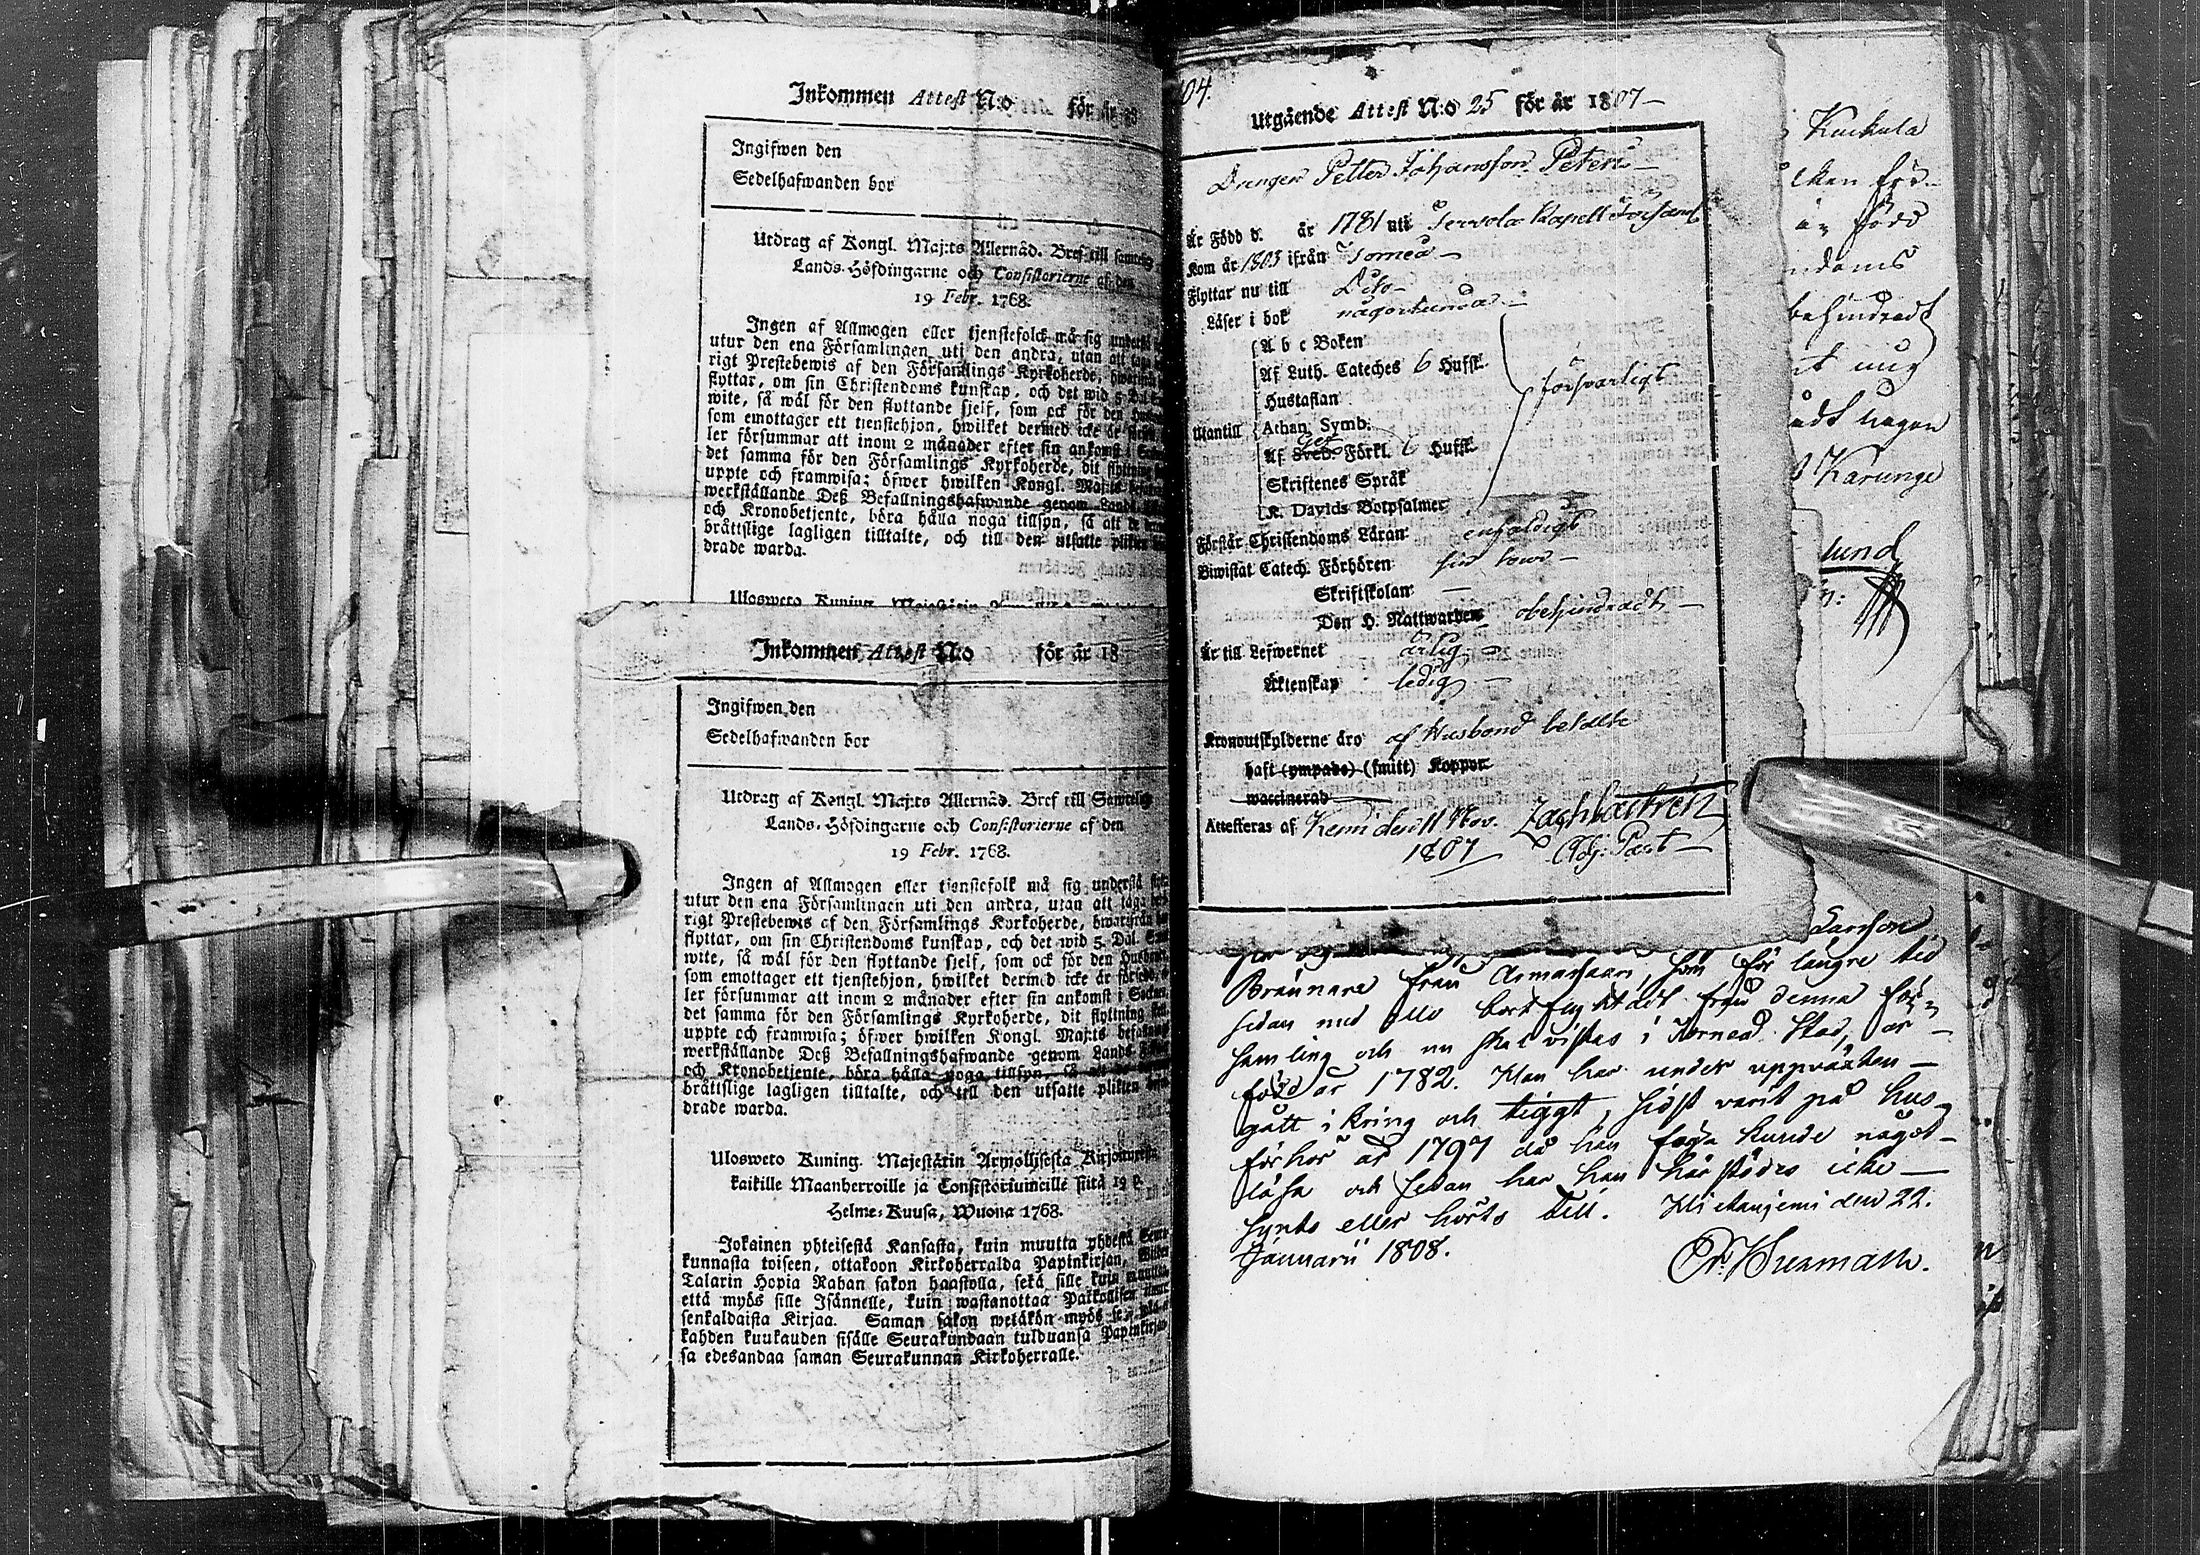 Inkommen Attest N:o för år 18
Ingifwen den
Sedelhafwanden bor
Utdrag af Kongl. Maj:ts Allernåd. Bref till samtelig
Lands-Höfdingarne och Consistorierne af den
19 Febr. 1768.
Ingen af Allmogen eller tjenstefolck må sig understå
utur den ena Församlingen uti den andra, utan att taga
rigt Prestebewis af den Församlings Kyrkoherde, hwarifrån
flyttar, om sin Christendoms kunskap, och det wid 5 Dal.
wite, så wäl för den flyttande sjelf, som ock för den
som emottager ett tjenstehjon, hwilket dermed icke är
ler försummar att inom 2 månader efter sin ankomst i
det samma för den Församlings Kyrkoherde, dit flyttning
uppte och framwisa; öfwer hwilken Kongl. Maj:ts
werkställande Deß Befallningshafwande genom Lands
och Kronobetjente, böra hålla noga tillsyn, så att de
bråttslige lagligen tilltalte, och till den utsatte plikten
drade warda.
Ulosweto Kuning. Majestätin
Inkommen Attest N:o för år 18
Ingifwen den
Sedelhafwanden bor
Utdrag af Kongl. Maj:ts Allernåd. Bref till Samtelig
Lands-Höfdingarne och Consistorierne af den
19 Febr. 1768.
Ingen af Allmogen eller tjenstefolk må sig understå
utur den ena Församlingen uti den andra, utan att taga
rigt Prestebewis af den Församlings Kyrkoherde, hwarifrån
flyttar, om sin Christendoms kunskap, och det wid 5 Dal.
wite, så wäl för den flyttande sjelf, som ock för den Husbond
som emottager ett tjenstehjon, hwilket dermed icke är försedt
ler försummar att inom 2 månader efter sin ankomst i Socken
det samma för den Församlings Kyrkoherde, dit flyttning
uppte och framwisa; öfwer hwilken Kongl. Maj:ts befallning
werkställande Deß Befallningshafwande genom Lands
och Kronobetjente, böra hålla noga tillsyn, så att de
bråttslige lagligen tilltalte, och till den utsatte plikten
drade warda.
Ulosweto Kuning. Majestätin Armollisesta Kirjoituxesta
kaikille Maanherroille ja Consistoriumeille siitä 19 p.
Helme-Kuusa, Wuona 1768.
Jokainen yhteisestä Kansasta, kuin muutta yhdestä Seura
kunnasta toiseen, ottakoon Kirkoherralda Papinkirjan, Wiiden
Talarin Hopia Rahan sakon haastolla, sekä sille kuin muutta
että myös sille Isännelle, kuin wastanottaa Palkollisen
senkaldaista Kirjaa. Saman sakon wetäkön myös
kahden kuukauden sisälle Seurakundaan tulduansa Papinkirjan
sa edesandaa saman Seurakunnan Kirkoherralle.
104.
Utgående Attest N:o 25 för år 1807
Drengen Petter Johansson Peteri
Är Född d. år 1781 uti Tervola Kapell Församl
Kom år 1803 ifrån Torneå
Flyttar nu till Dito
Läser i bok någorlunda
A b c Boken
Af Luth. Cateches 6 Hufst.
Hustaflan
försvarligt
Utantill Athan. Symb.
Af Sveb. Förkl. 6 Hufst.
Skriftenes Språk
K. Davids Botpsalmer
Förstår Christendoms Läran enfaldigt
Biwistat Catech. Förhören sin tour
Skriftskolan
Den H. Nattwarden obehindradt
Är till Lefwernet ärlig
Äktenskap ledig
Kronoutskylderne äro af Husbond betalte
haft (ympade) (smitt) Koppor
waccinerad
Attesteras af Kemi den 11 Nov. Zach Castrén
1807 Adj: Past
Kuckula
lken för
är född
ndoms
behindradt
it ung
adt nagon
Karunge
lund
Larsson
Brännare från Armassaari, som för längre tid
sedan med allo bortflyttadt från denna för-
samling och nu skal vistas i Torneå Stad, är
född år 1782. Han har under uppväxten
gått ikring och tiggt, sidst varit på hus
förhör år 1797 då han föga kunde något
läsa och sedan har han härstädes icke
synts eller hörts till. Hietaniemi den 22.
Januarii 1808.